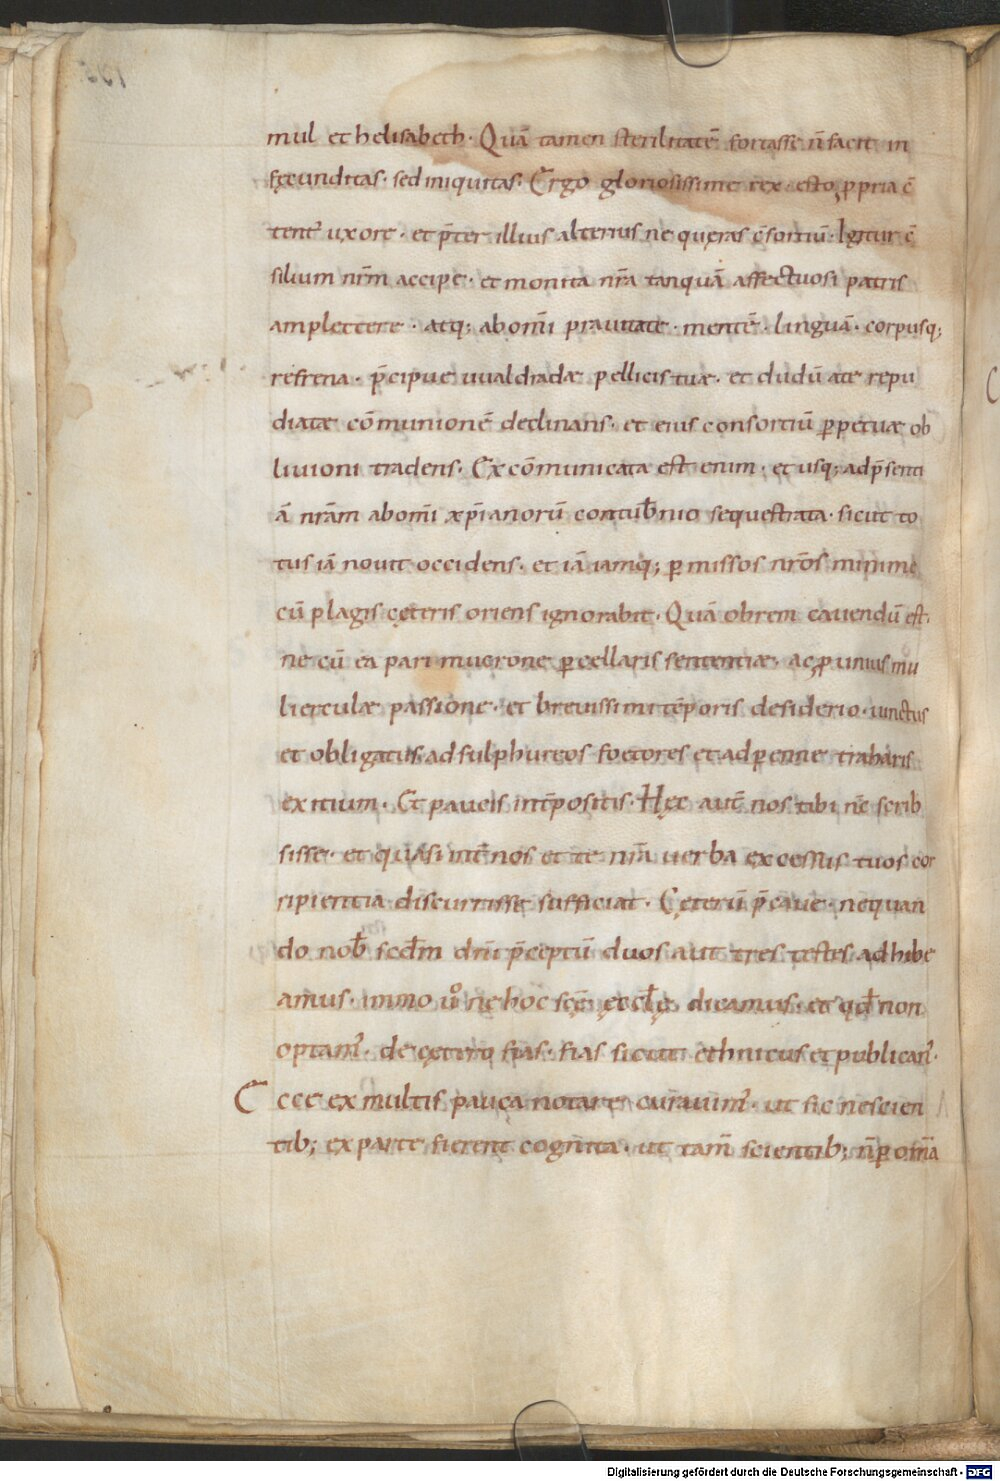 mul et helisabeth· Quā tamen sterilitatē fortasse n̄ facit in
fęcunditas· sed iniquitas· Ergo gloriosissime rex esto ꝓpria c̄
tent᾽ uxore· et p̄ter illius alterius ne quęras c̄sortiū· Igitur c̄
silium nr̄m accipe· et monita nr̄a tanquā affectuosi patris
amplectere· atq; ab om̄i prauitate· mentē· linguā· corpusq;
refrena· p̄cipue uualdradæ pellicis tuæ· et dudū a te repu
diatæ cōmunionē declinans· et eius consortiū ꝑpetuæ ob
liuioni tradens· Excōmunicata est enim· et usq; ad p̄senti
ā nr̄am ab om̄i xp̄ianorū contub̄nio sequestrata· sicut to
tus iā nouit occidens· et iā iamq; ꝑ missos nr̄os minime
cū plagis cęteris oriens ignorabit· Quā obrem cauendū est·
ne cū ea pari mucrone ꝑcellaris sententiæ· ac ꝓ unius mu
lierculæ passione· et breuissimi tēporis desiderio· uinctus
et obligatus ad sulphureos foetores et ad ꝑenne traharis
exitium· Et paucis int̄positis· Hęc aut̄ nos tibi n̄c scrib
sisse· et quasi int̄ nos et te nr̄a uerba excessus tuos cor
ripientia discurrisse sufficiat· Cęterū p̄caue· ne quan
do nob̄ scd̄m dn̄i p̄ceptū duos aut tres testes adhibe
amus· immo uͦ ne hoc scę̄ ęccl̄ę dicamus· et qd̄ non
optam᾽· de cętero fias· fias sicut ethnicus et publican᾽·
Ecce ex multis pauca notare curauim᾽· ut sic nescien
tib; ex parte fierent cognita· ut tam̄ scientib; n̄ ꝑ om̄ia